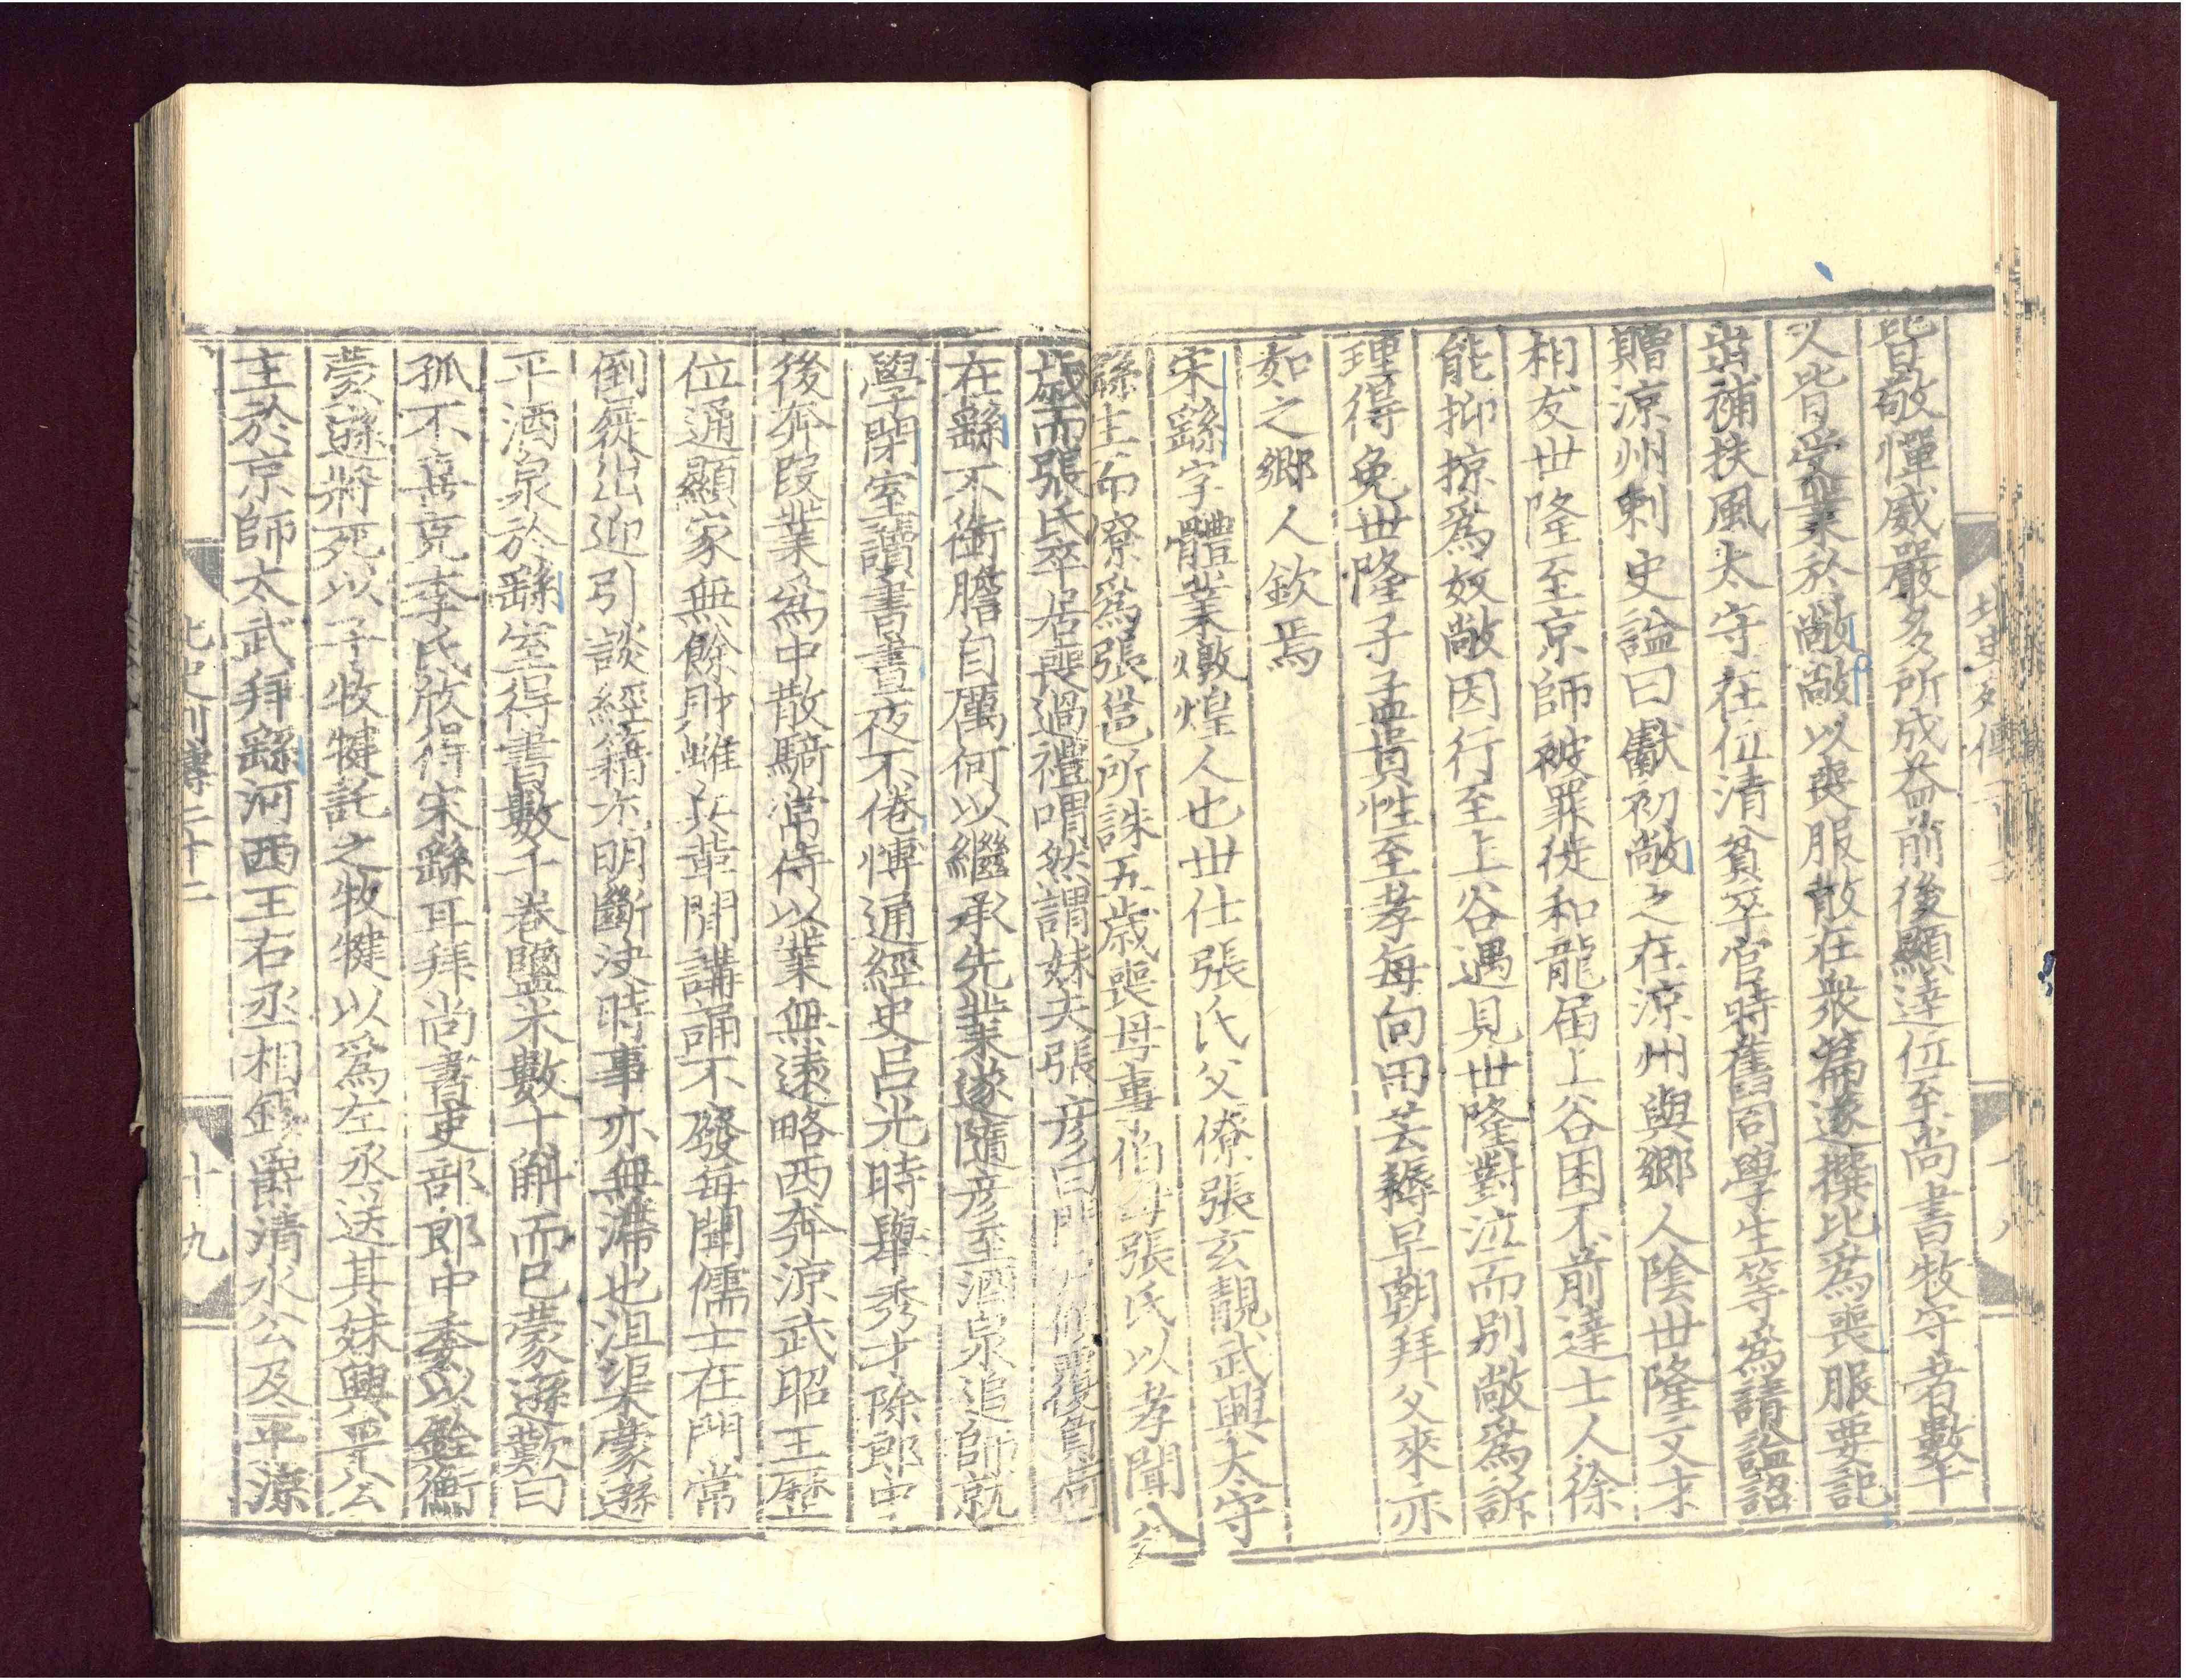 皆敬憚威嚴多所成益前後顯達位至尚書牧守者數十
人皆受業於敞敞以喪服散在衆篇遂撰比爲喪服要記
出補扶風太守在位清貧卒官時舊同學生等爲請謚詔
贈涼州刺史謚曰獻初敞之在涼州與鄉人陰世隆文才
相友世隆至京師被罪徙和龍届上谷困不前達士人徐
能抑掠爲奴敞因行至上谷遇見世隆對泣而別敞爲訴
理得免世隆子孟貴性至孝每向田芸耨早朝拜父來亦
如之鄉人欽焉
宋繇字體業燉煌人也世仕張氏父僚張玄靚武興太守
繇生而僚爲張邕所誅五歲喪母事伯母張氏以孝聞八
歲而張氏卒居喪過禮喟然謂妹夫張彦曰門户傾覆負荷
在繇不銜膽自厲何以繼承先業遂隨彦至酒泉追師就
學閉室讀書晝夜不倦博通經史吕光時舉秀才除郎中
後奔段業爲中散騎常侍以業無遠略西奔涼武昭王歷
位通顯家無餘財雖兵革間講誦不廢每聞儒士在門常
倒屣出迎引談經籍尤明斷決時事亦無滯也沮渠蒙遜
平酒泉於繇室得書數千卷鹽米數十斛而已蒙遜歎曰
孤不喜克李氏欣得宋繇耳拜尚書吏部郎中委以銓衡
蒙遜將死以子牧犍託之牧犍以爲左丞送其妹興平公
主於京師太武拜繇河西王右丞相錫爵清水公及平涼
北史列傳二十二 十九